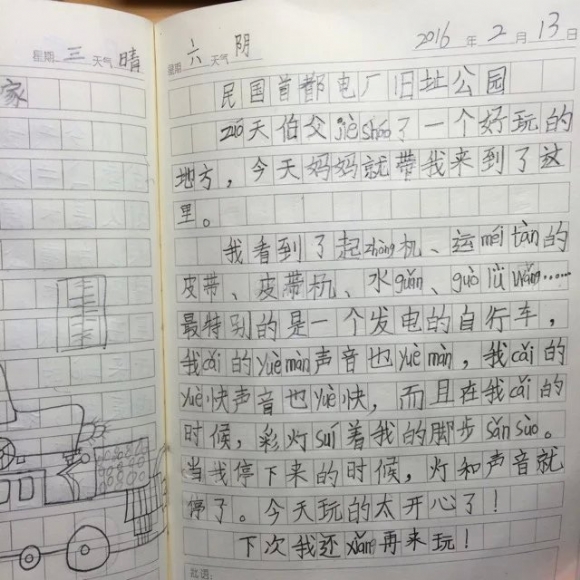 星期 三 天气 晴
家
星期 六 天气 阴 2016 年 2 月 13 日
民国首都电厂旧址公园
zuó天伯父jiè shào了一个好玩的
地方，今天妈妈就带我来到了这
里。
我看到了起zhòng机、运méi tàn的
皮带、皮带机、水guǎn、guò lǜ wǎng……
最特别的是一个发电的自行车，
我cǎi的yuè màn声音也yuè màn，我cǎi的
yuè快声音也yuè快，而且在我cǎi的
时候，彩灯suí着我的脚步shǎn shuò。
当我停下来的时候，灯和声音就
停了。今天玩的太开心了！
下次我还xiǎng再来玩！
批语：